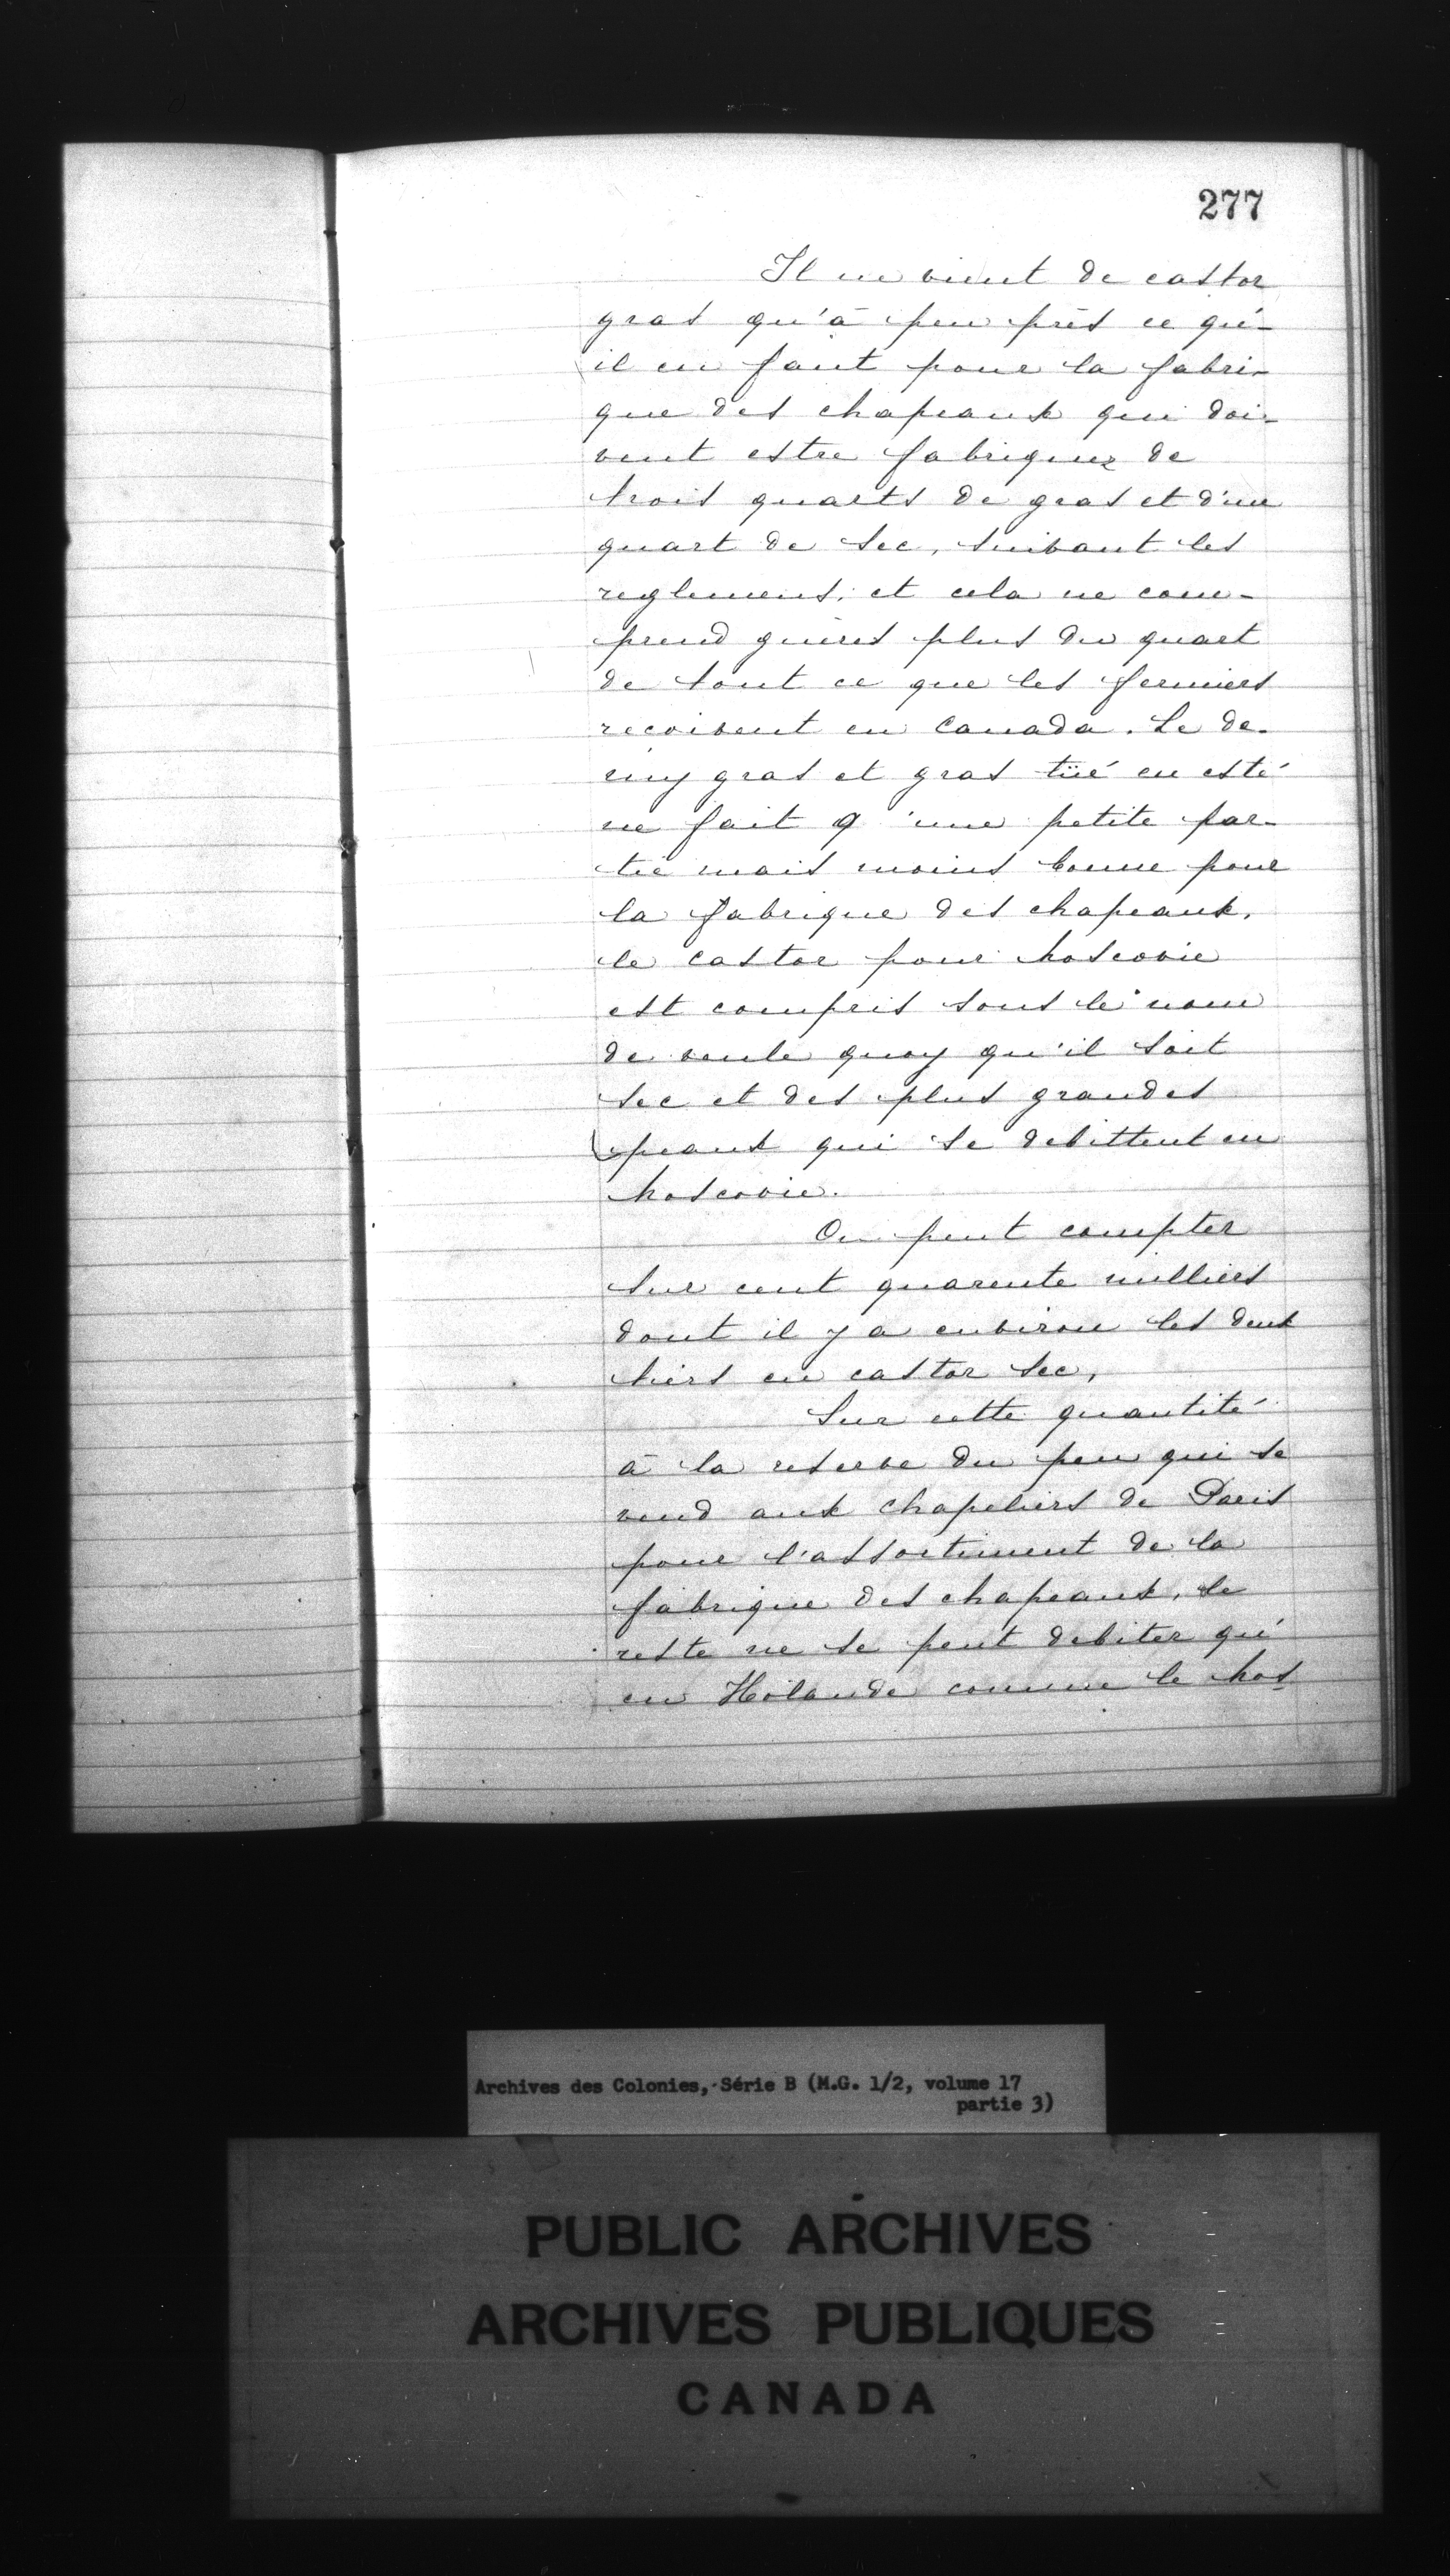 277
Il ne vient de castor
gras qu'à peu près ce qu'-
il en faut pour la fabri-
que des chapeaux qui doi-
vent estre fabriquez de
trois quarts de gras et d'un
quart de sec, suivant les
reglemens; et cela ne com-
prend guères plus du quart
de tout ce que les fermiers
recoivent en Canada. Le de-
my gras et gras tüé en esté
ne fait q'une petite par-
tie mais moins bonne pour
la fabrique des chapeaux,
le castor pour Moscovie
est compris sous le nom
de veule quoy qu'il soit
sec et des plus grandes
peaux qui se debittent en
Moscovie.
On peut compter
sur cent quarente milliers
dont il y a environ les deux
tiers en castor sec,
Sur cette quantité
à la reserve du peu qui se
vend aux chapeliers de Paris
pour l'assortiment de la
fabrique des chapeaux, le
reste ne se peut debiter qu'
en Holande comme le Mos-
Archives des Colonies, Série B (M.G. 1/2, volume 17
partie 3)
PUBLIC ARCHIVES
ARCHIVES PUBLIQUES
CANADA